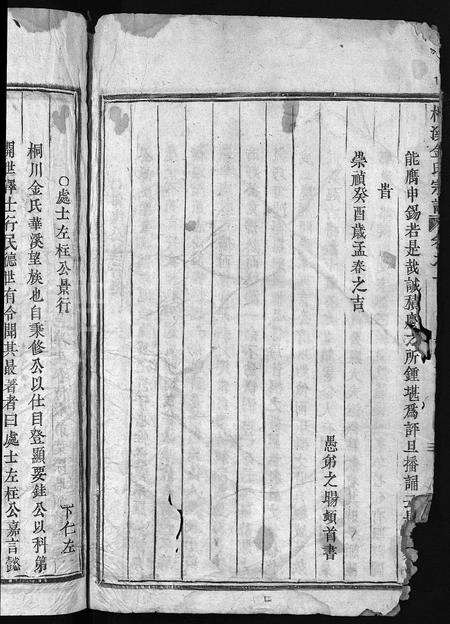 桐溪金氏宗譜
能膺申錫若是哉誠積慶之所鍾堪爲評旦播誦
旹
崇禎癸酉歲孟春之吉
愚弟之賜頓首書
○處士左桂公景行
下仁左
桐川金氏華溪望族也自秉修公以仕目登顯要鉉公以科第
開世擇士行民德世有令聞其最著者曰處士左桂公嘉言懿